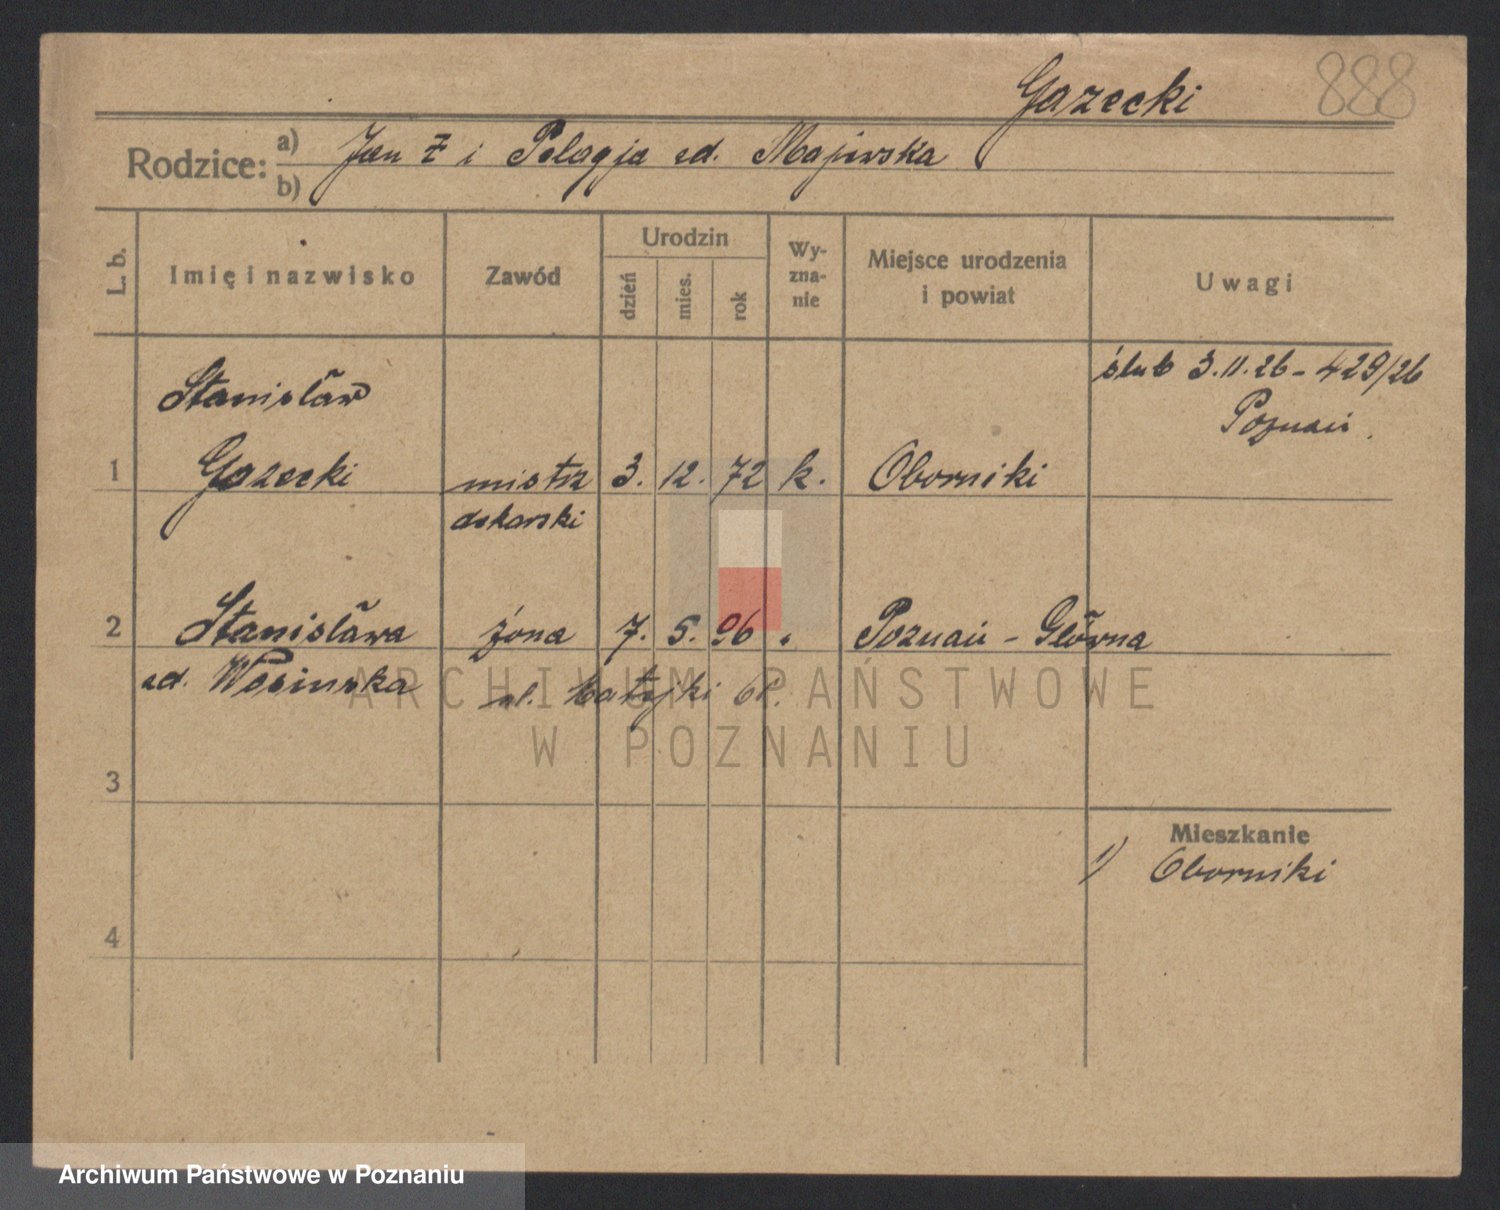 Gazecki 888
Rodzice: a) b) Jan Z i Pelagja zd. Majewska
L. b. Imię i nazwisko Zawód Urodzin dzień mies. rok Wy-zna-nie Miejsce urodzenia i powiat Uwagi
ślub 3.11.26 - 429/26
Poznań.
Stanisław
1 Gazecki mistrz 3. 12. 72 k. Oborniki
dekarski
2 Stanisława żona 7. 5. 96 " Poznań - Główna
zd. ul. 61.
ARCHIWUM PAŃSTWOWE
W POZNANIU
3
Mieszkanie
1) Oborniki
4
Archiwum Państwowe w Poznaniu